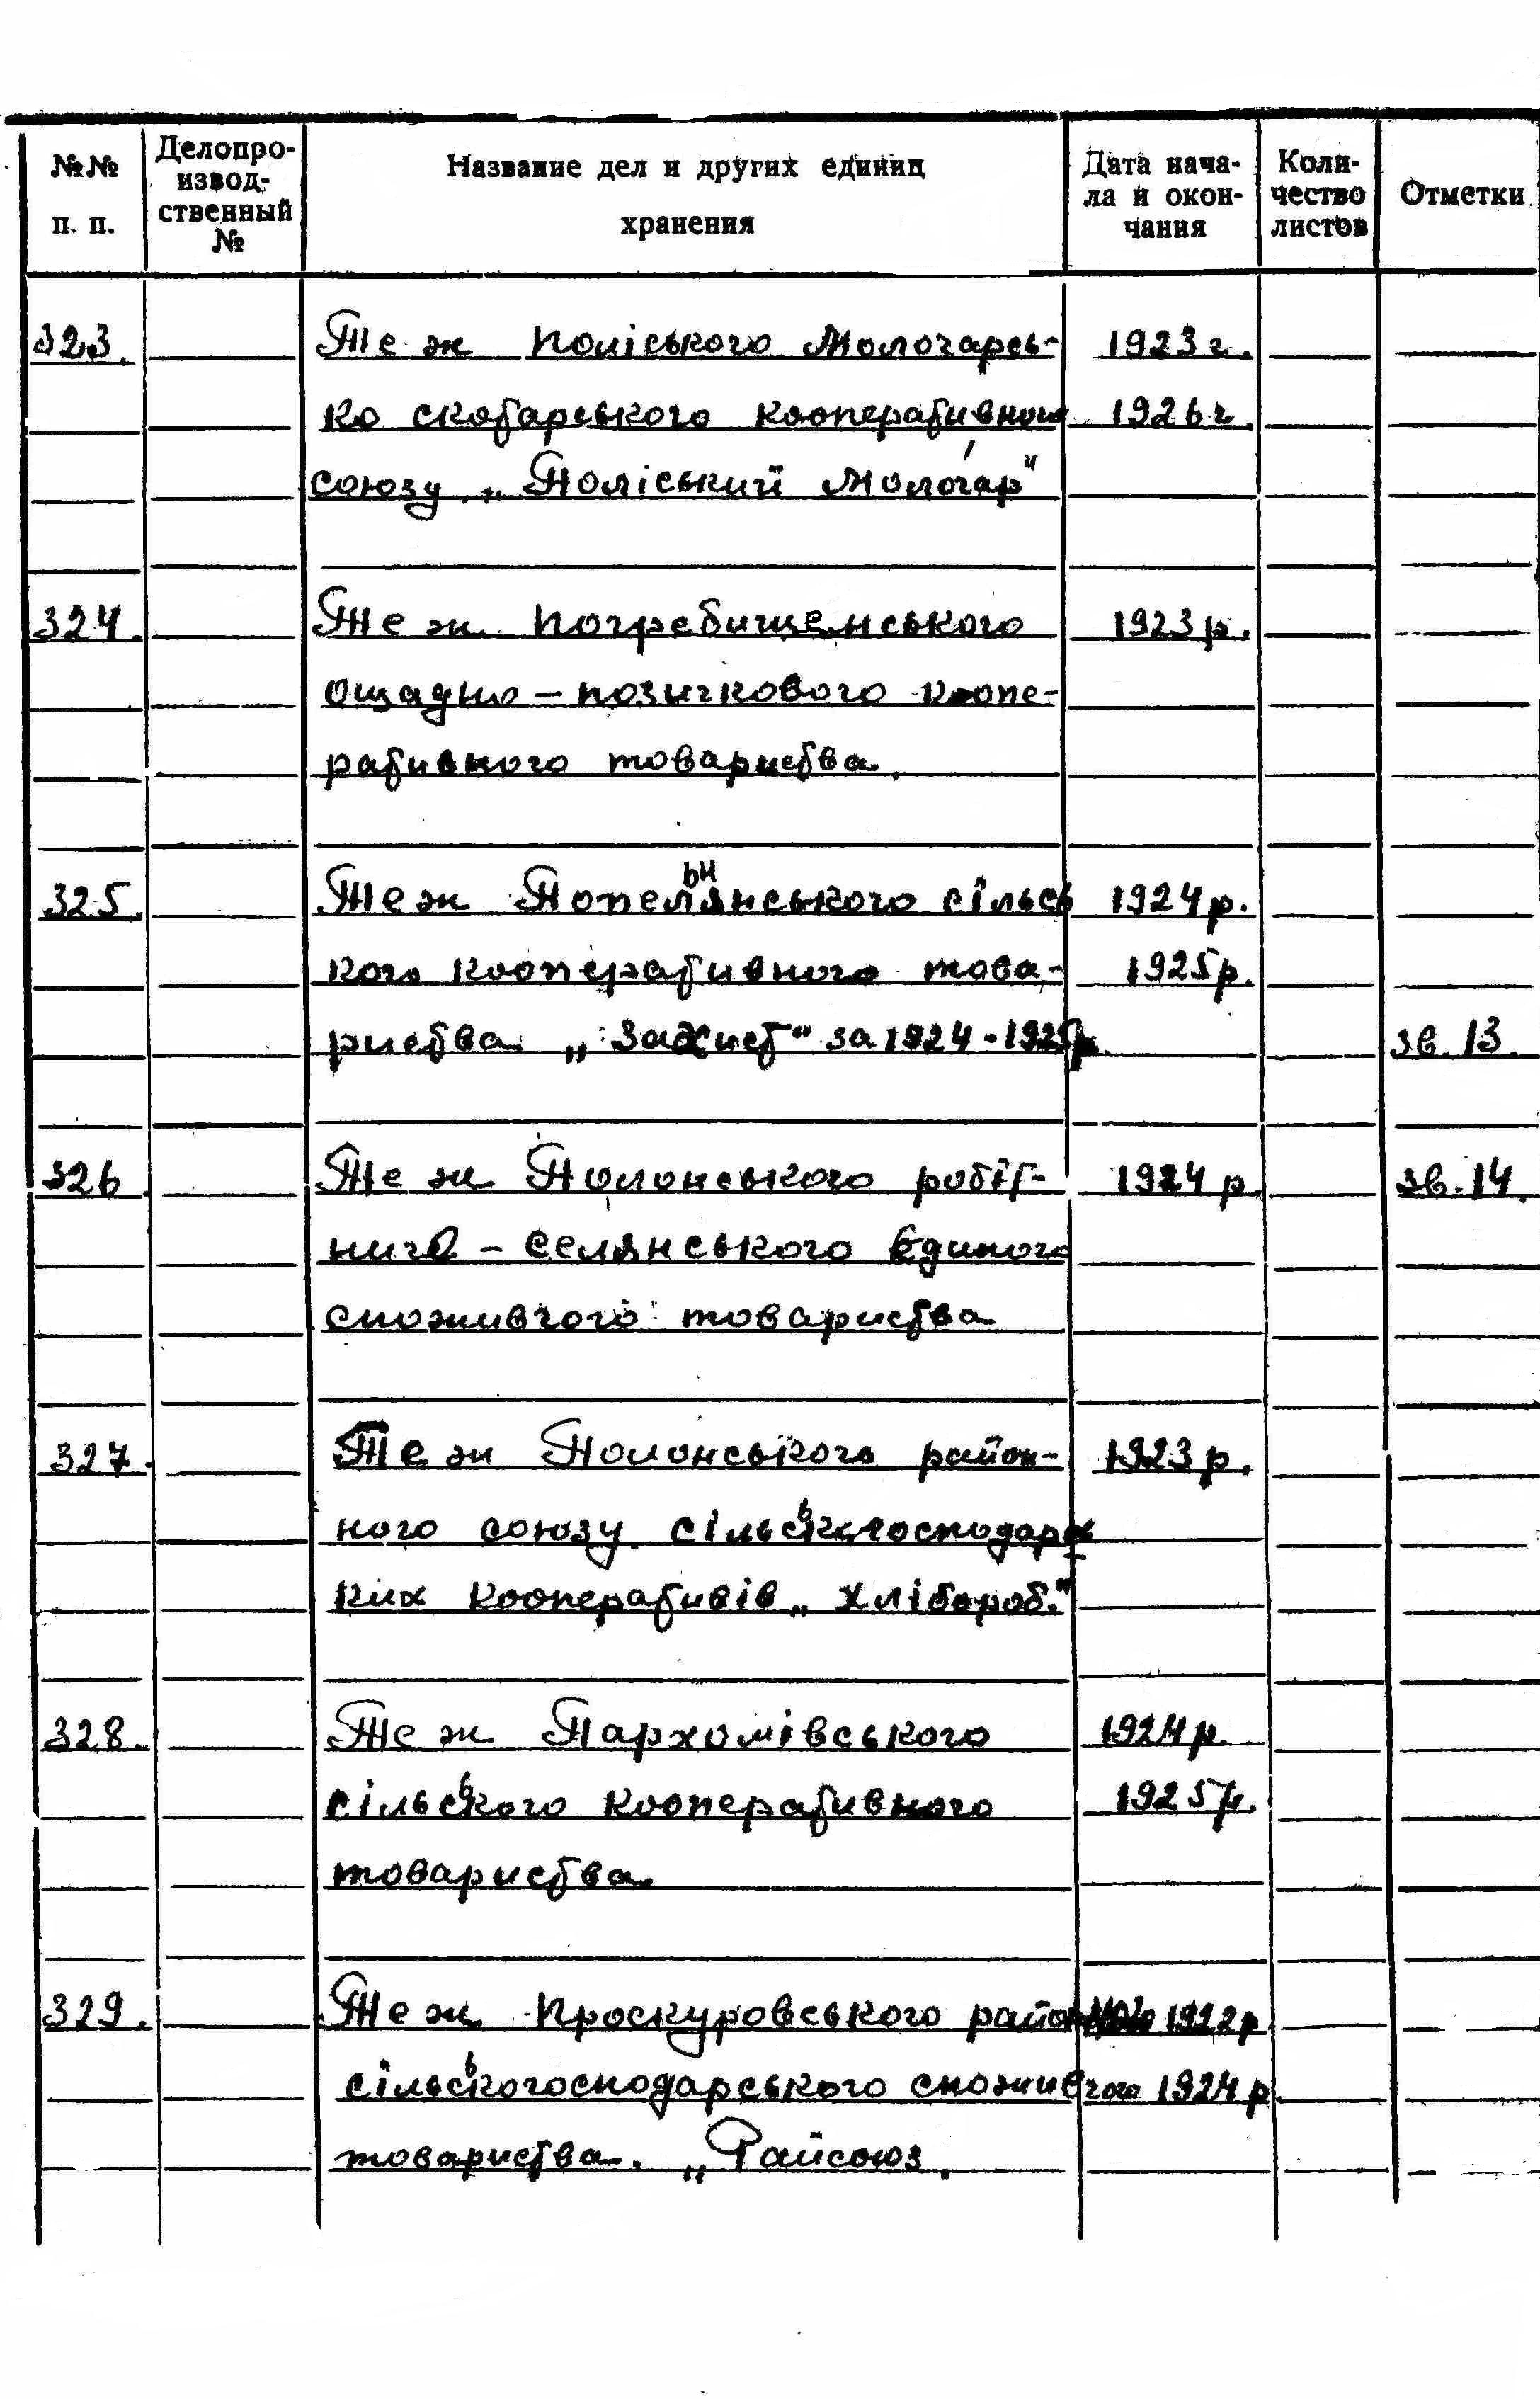 №№ п. п. Делопро-извод-ственный № Название дел и других единиц хранения Дата нача-ла и окон-чания Коли-чество листов Отметки
323. Теж Поліського Молочарсь- 1923 г.
ко скотарського кооперативного 1926 г.
союзу „Поліський Молочар"
324. Теж Погребищемського 1923 р.
ощадно – позичкового коопе-
ративного товариства.
325. Теж Попельнянського сільсь 1924 р.
кого кооперативного това- 1925 р.
риства „Захист" за 1924-1925 р. зв. 13.
326 Теж Полонського робіт- 1924 р зв. 14.
ниче – селянського Єдиного
споживчого товариства
327. Теж Полонського район- 1923 р.
ного союзу сільськогосподарсь
ких кооперативів „Хлібороб."
328. Теж Пархомівського 1924 р.
сільського кооперативного 1925 р.
товариства.
329. Теж Проскуровського районного 1922 р
сільськогосподарського споживчого 1924 р
товариства. „Райсоюз.